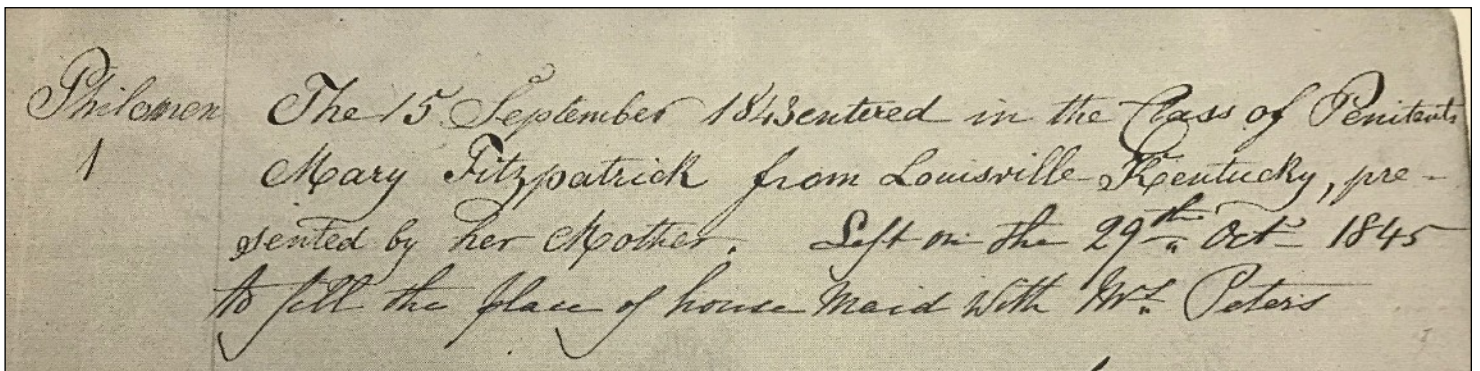 Philomen The 15 September 1843 entered in the Class of Penitents
1 Mary Fitzpatrick from Louisville Kentucky, pre-
sented by her Mother. Left on the 29th Oct 1845
to fill the place of house Maid with Mrs. Peters